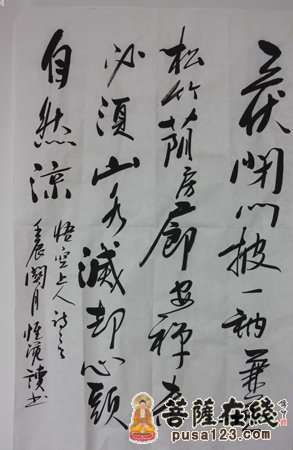 三伏閉門披一衲兼
松竹蔭房廊安禪不
必須山水滅却心頭
自然涼
悟空上人詩
壬辰閏月書
菩薩在綫
pusa123.com